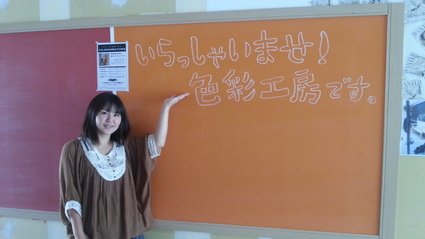 いらっしゃいませ!
色彩工房です。